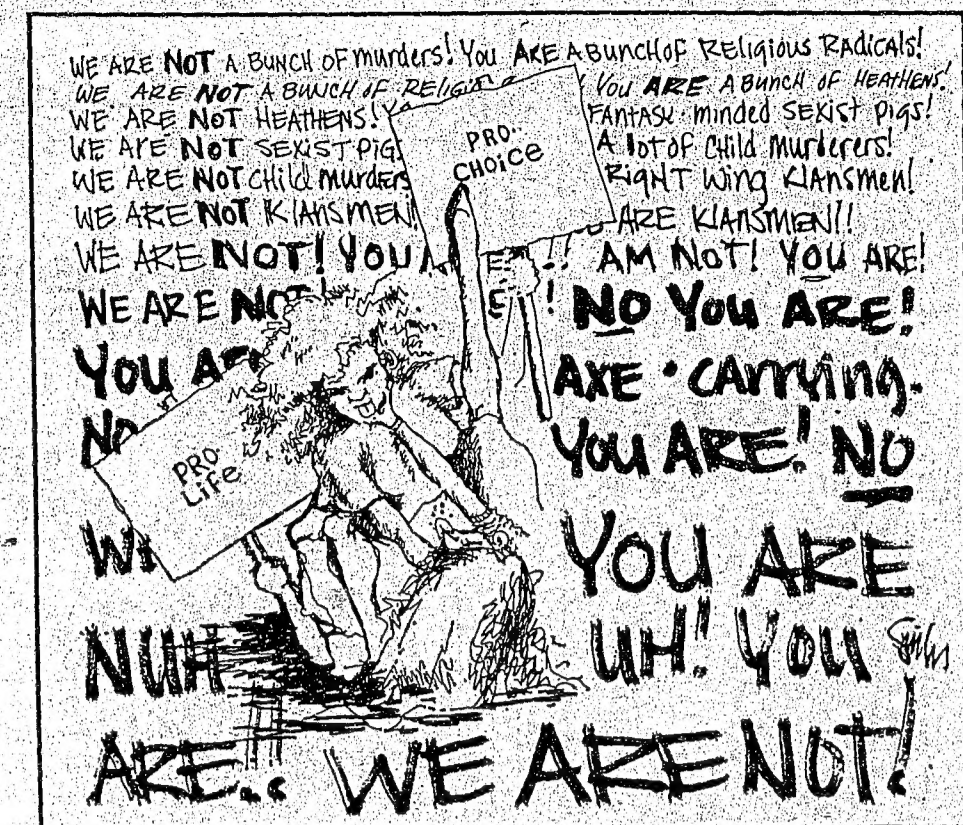 WE ARE NOT A BUNCH OF murders! You ARE A BUNCH OF RELigious RADICALS!
WE ARE NOT A BUNCH OF RELIGI You ARE A BUNCH OF HEATHENS!
WE ARE NOT HEATHENS! FANTASY-minded SEXIST pigs!
WE ARE NOT SEXIST PIGS A lot of CHild murderers!
WE ARE NOT CHild murders RIGHT Wing KLANSmen!
WE ARE NOT KLANSMEN! ARE KLANSMEN!!
WE ARE NOT! YOU AM NOT! YOU ARE!
WE ARE NOT! ! NO YOU ARE!
YOU AR AXE-CArrying-
NO YOU ARE! NO
PRO-
CHoice
PRO-
Life
W YOU ARE
NUH UH! YOU
ARE!! WE ARE NOT!